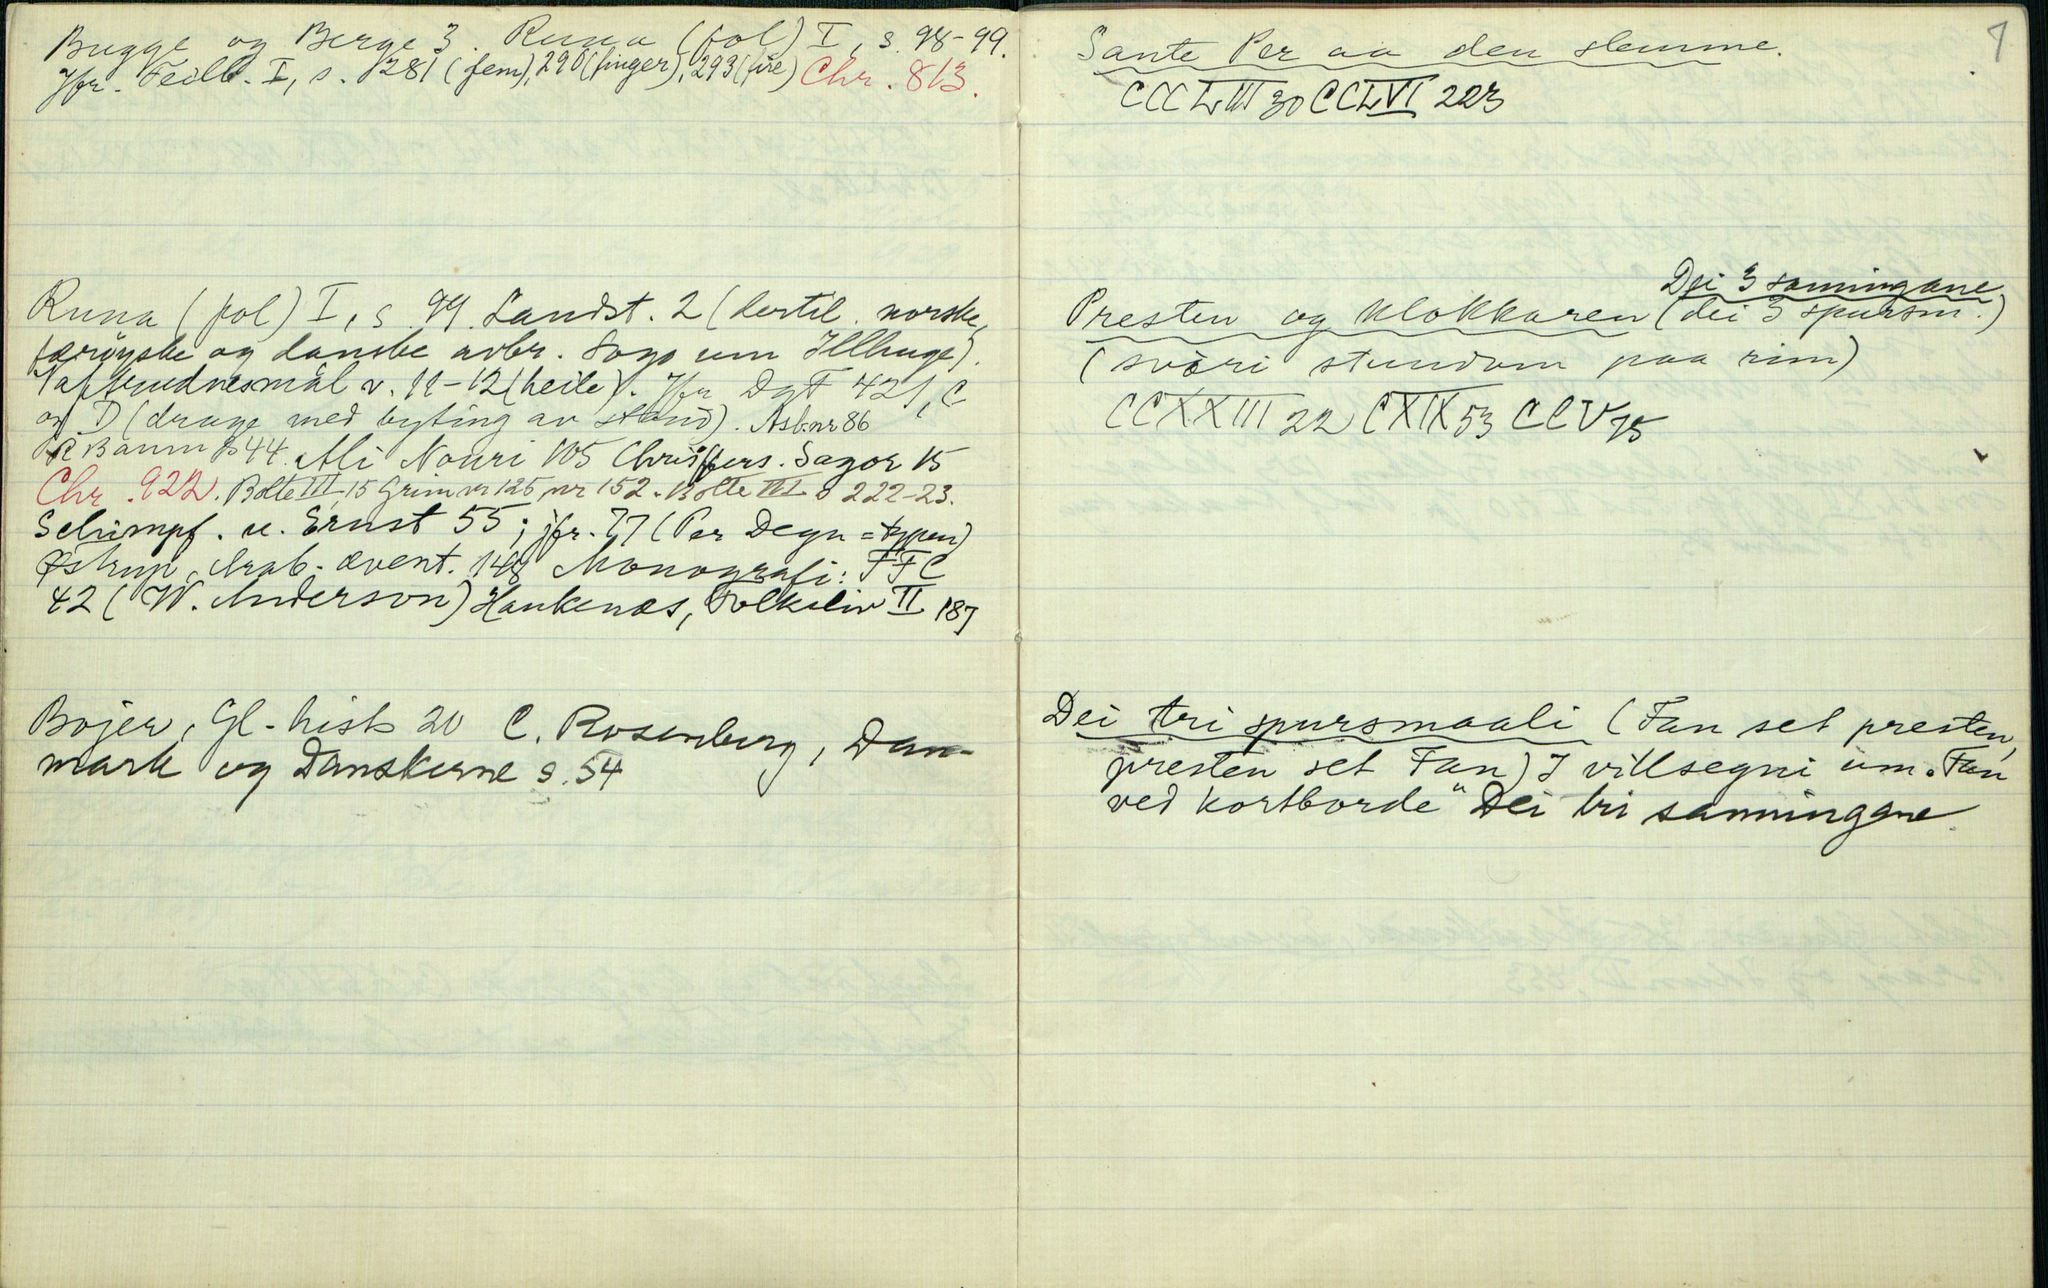 Bugge og Berge 3. Runa (fol) I, s. 98-99.
Jfr. Feilb. I, s. 281 (fem), 290 (finger), 293 (fire) Chr. 813.
Runa (fol) I, s 99. Landst. 2 (hertil norske,
færøyske og danske avbr. Sogo um Illhuge).
Vaftrudnesmål v. 11-12 (heile). Jfr DgF 421, C
og D (drage med byting av stand). Asb. nr 86
Baum 344. Ali Nouri 105 Christfers. Sagor 15
Chr. 922. Bolte III 15 Grim nr 125, nr 152. Bolte III s 222-23.
Schimpf. u. Ernst 55; jfr. 77 (Per Degn = typen)
Østrup, Arab. ævent. 148 Monografi: FFC
42 (W. Anderson) Haukenæs, Folkeliv II 187
Bojer, Gl-hist 20 C. Rosenberg, Dan-
mark og Danskerne s. 54
1
Sante Per aa den slemme.
CCCLVIII 30 CCLVI 223
Dei 3 sanningane
Presten og klokkaren (dei 3 spursm.)
(svari stundom paa rim)
CCXXIII 22 CXIX 53 CCV 75
Dei tri spursmaali (Fan set presten,
presten set Fan) I villsegni um „Fan
ved kortborde" Dei tri sanningane